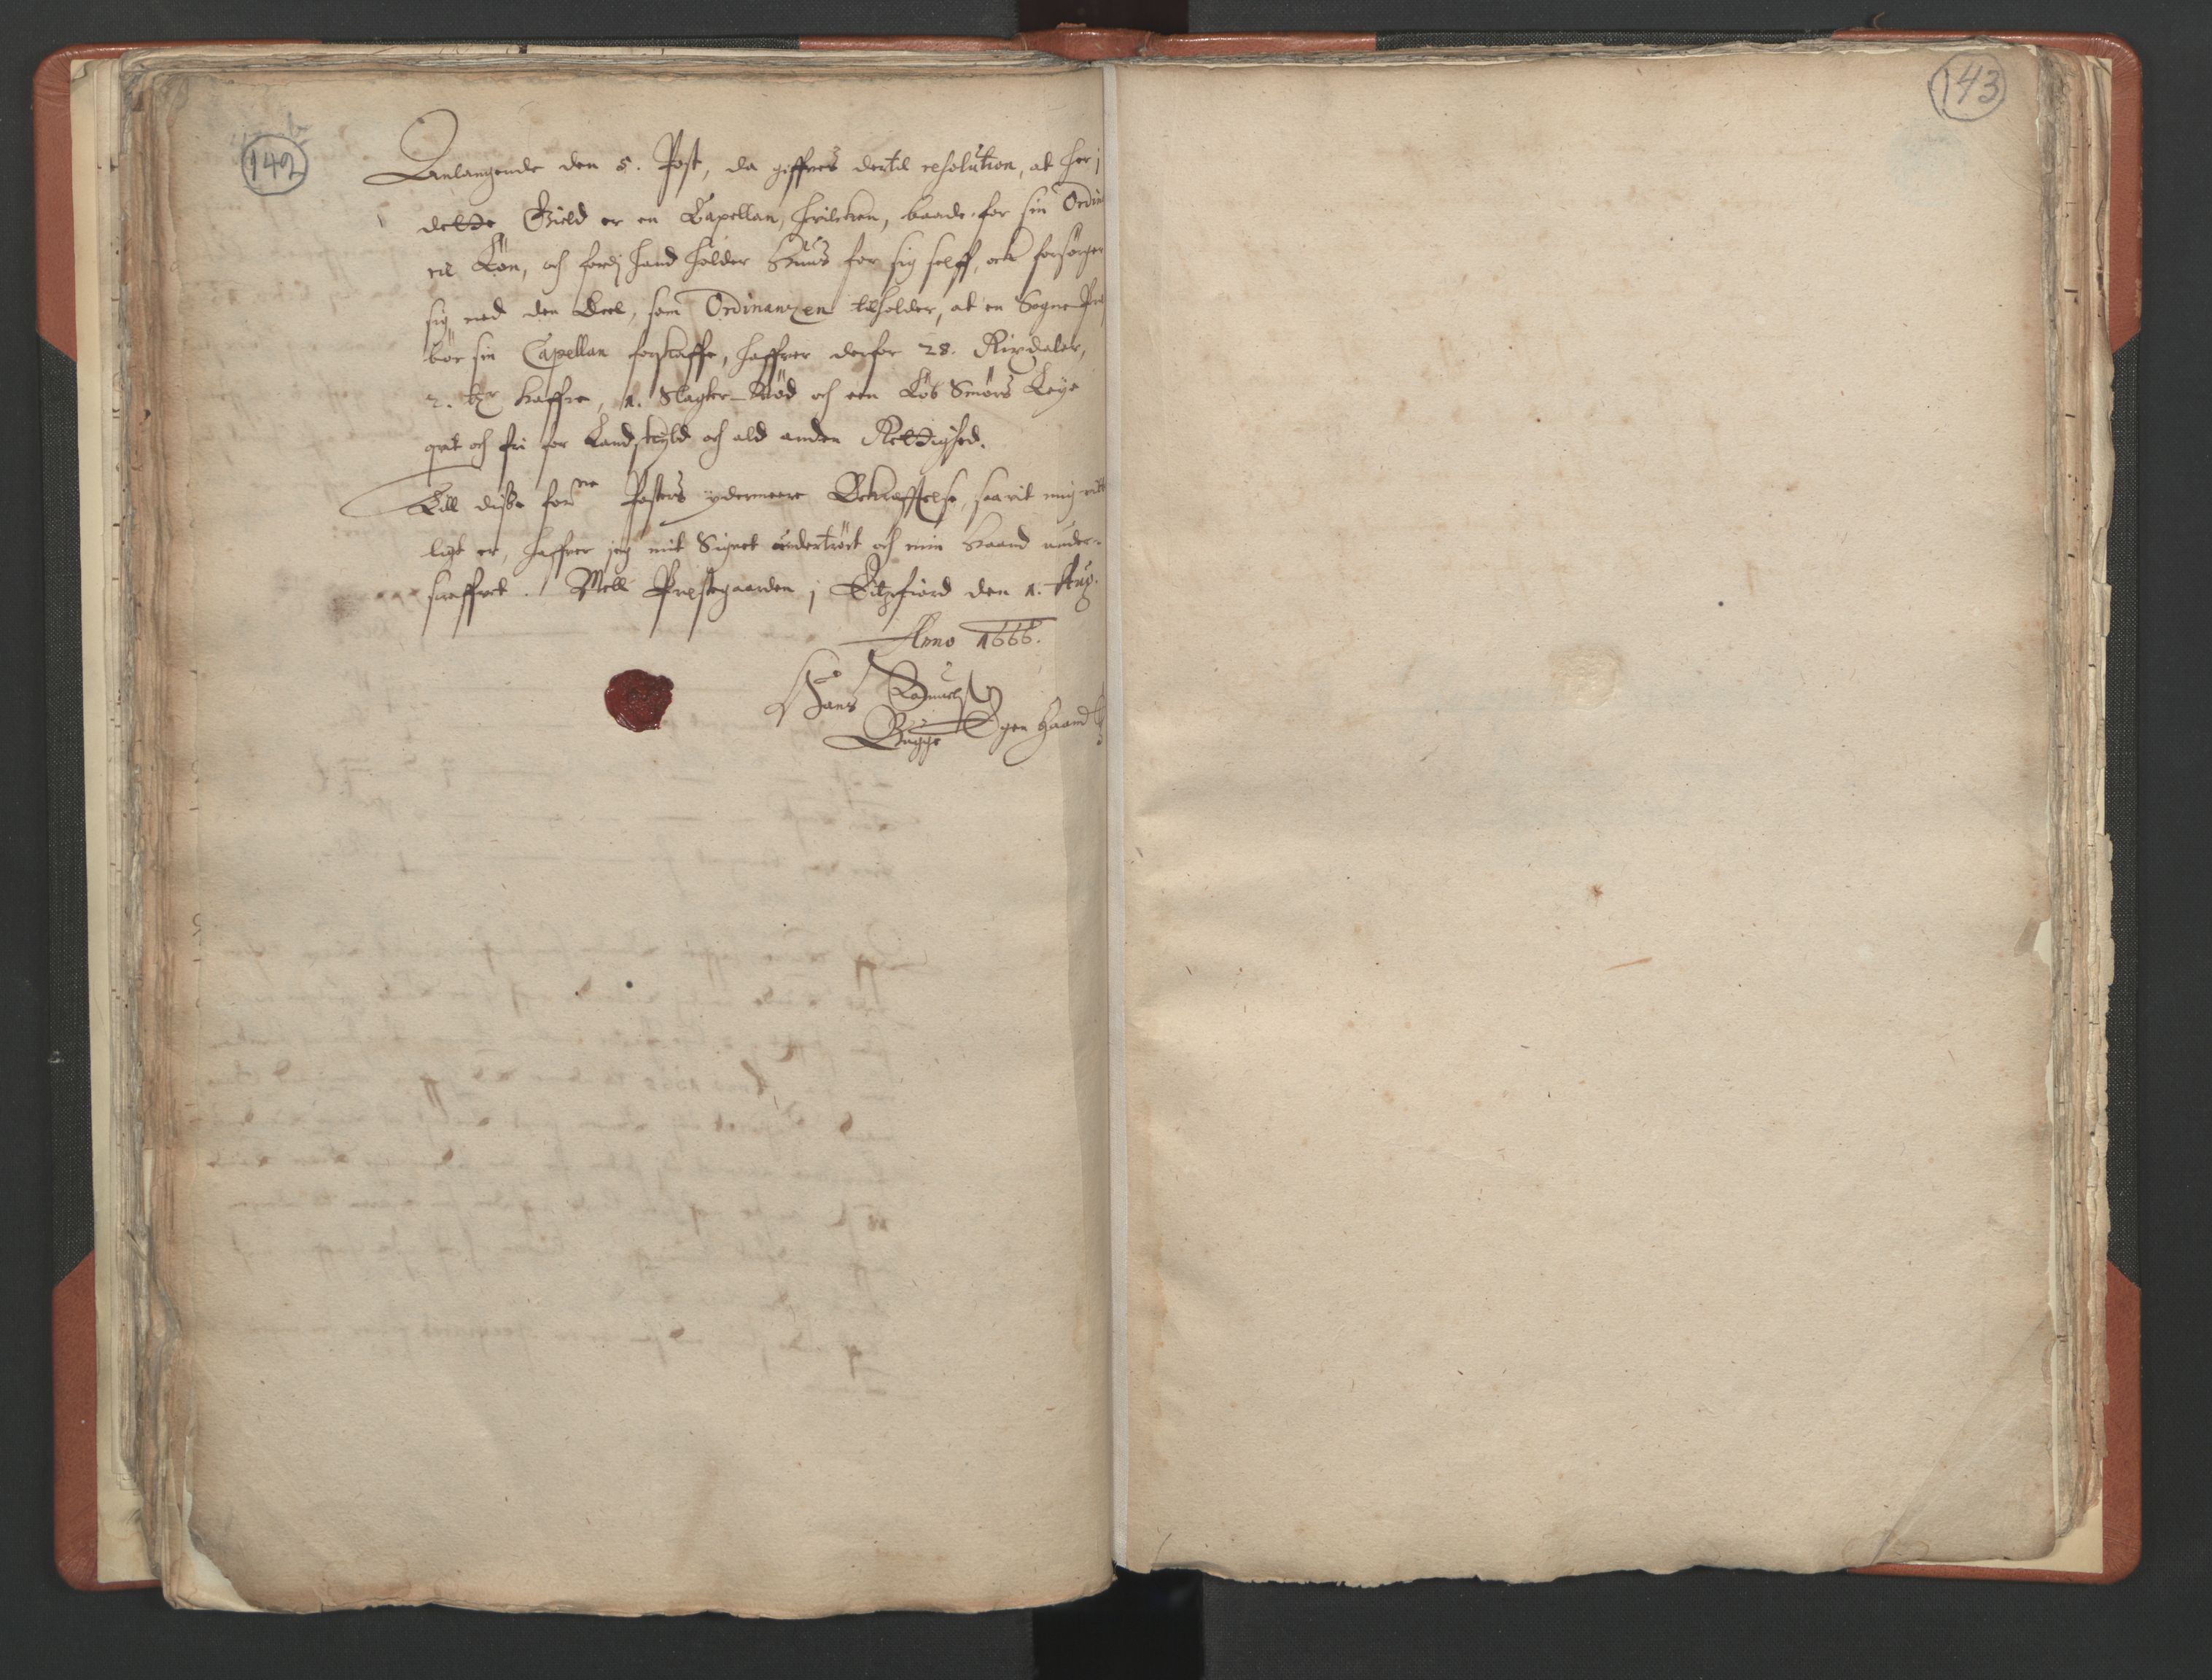 142
143
Anlangende den 5. Post, da giffves dertil resolution, at her j
dette Gield er en Capellan, hvilcken, baade for sin Ordina
rie Løn, och fordj hand holder Huus for sig selff, och forsørger
sig med den Deel, som Ordinanzen tilholder, at en Sogne Præst
bør sin Capellan forskaffe, haffver derfor 28. Rixdaler,
2. tr Haffre, 1. Slagter-Nød och een Løb Smørs Leye
qvit och fri for Landskyld och ald anden Rettighed.
Till disse forne Posters ydermeere Bekræfftelse, saavit mig vitt
ligt er, haffver jeg mit Signet undertrÿct och min Haand under-
skreffvet. Mell Prestegaarden j den 1. Aug.
Anno 1666.
Hans
Bugge Egen Haand